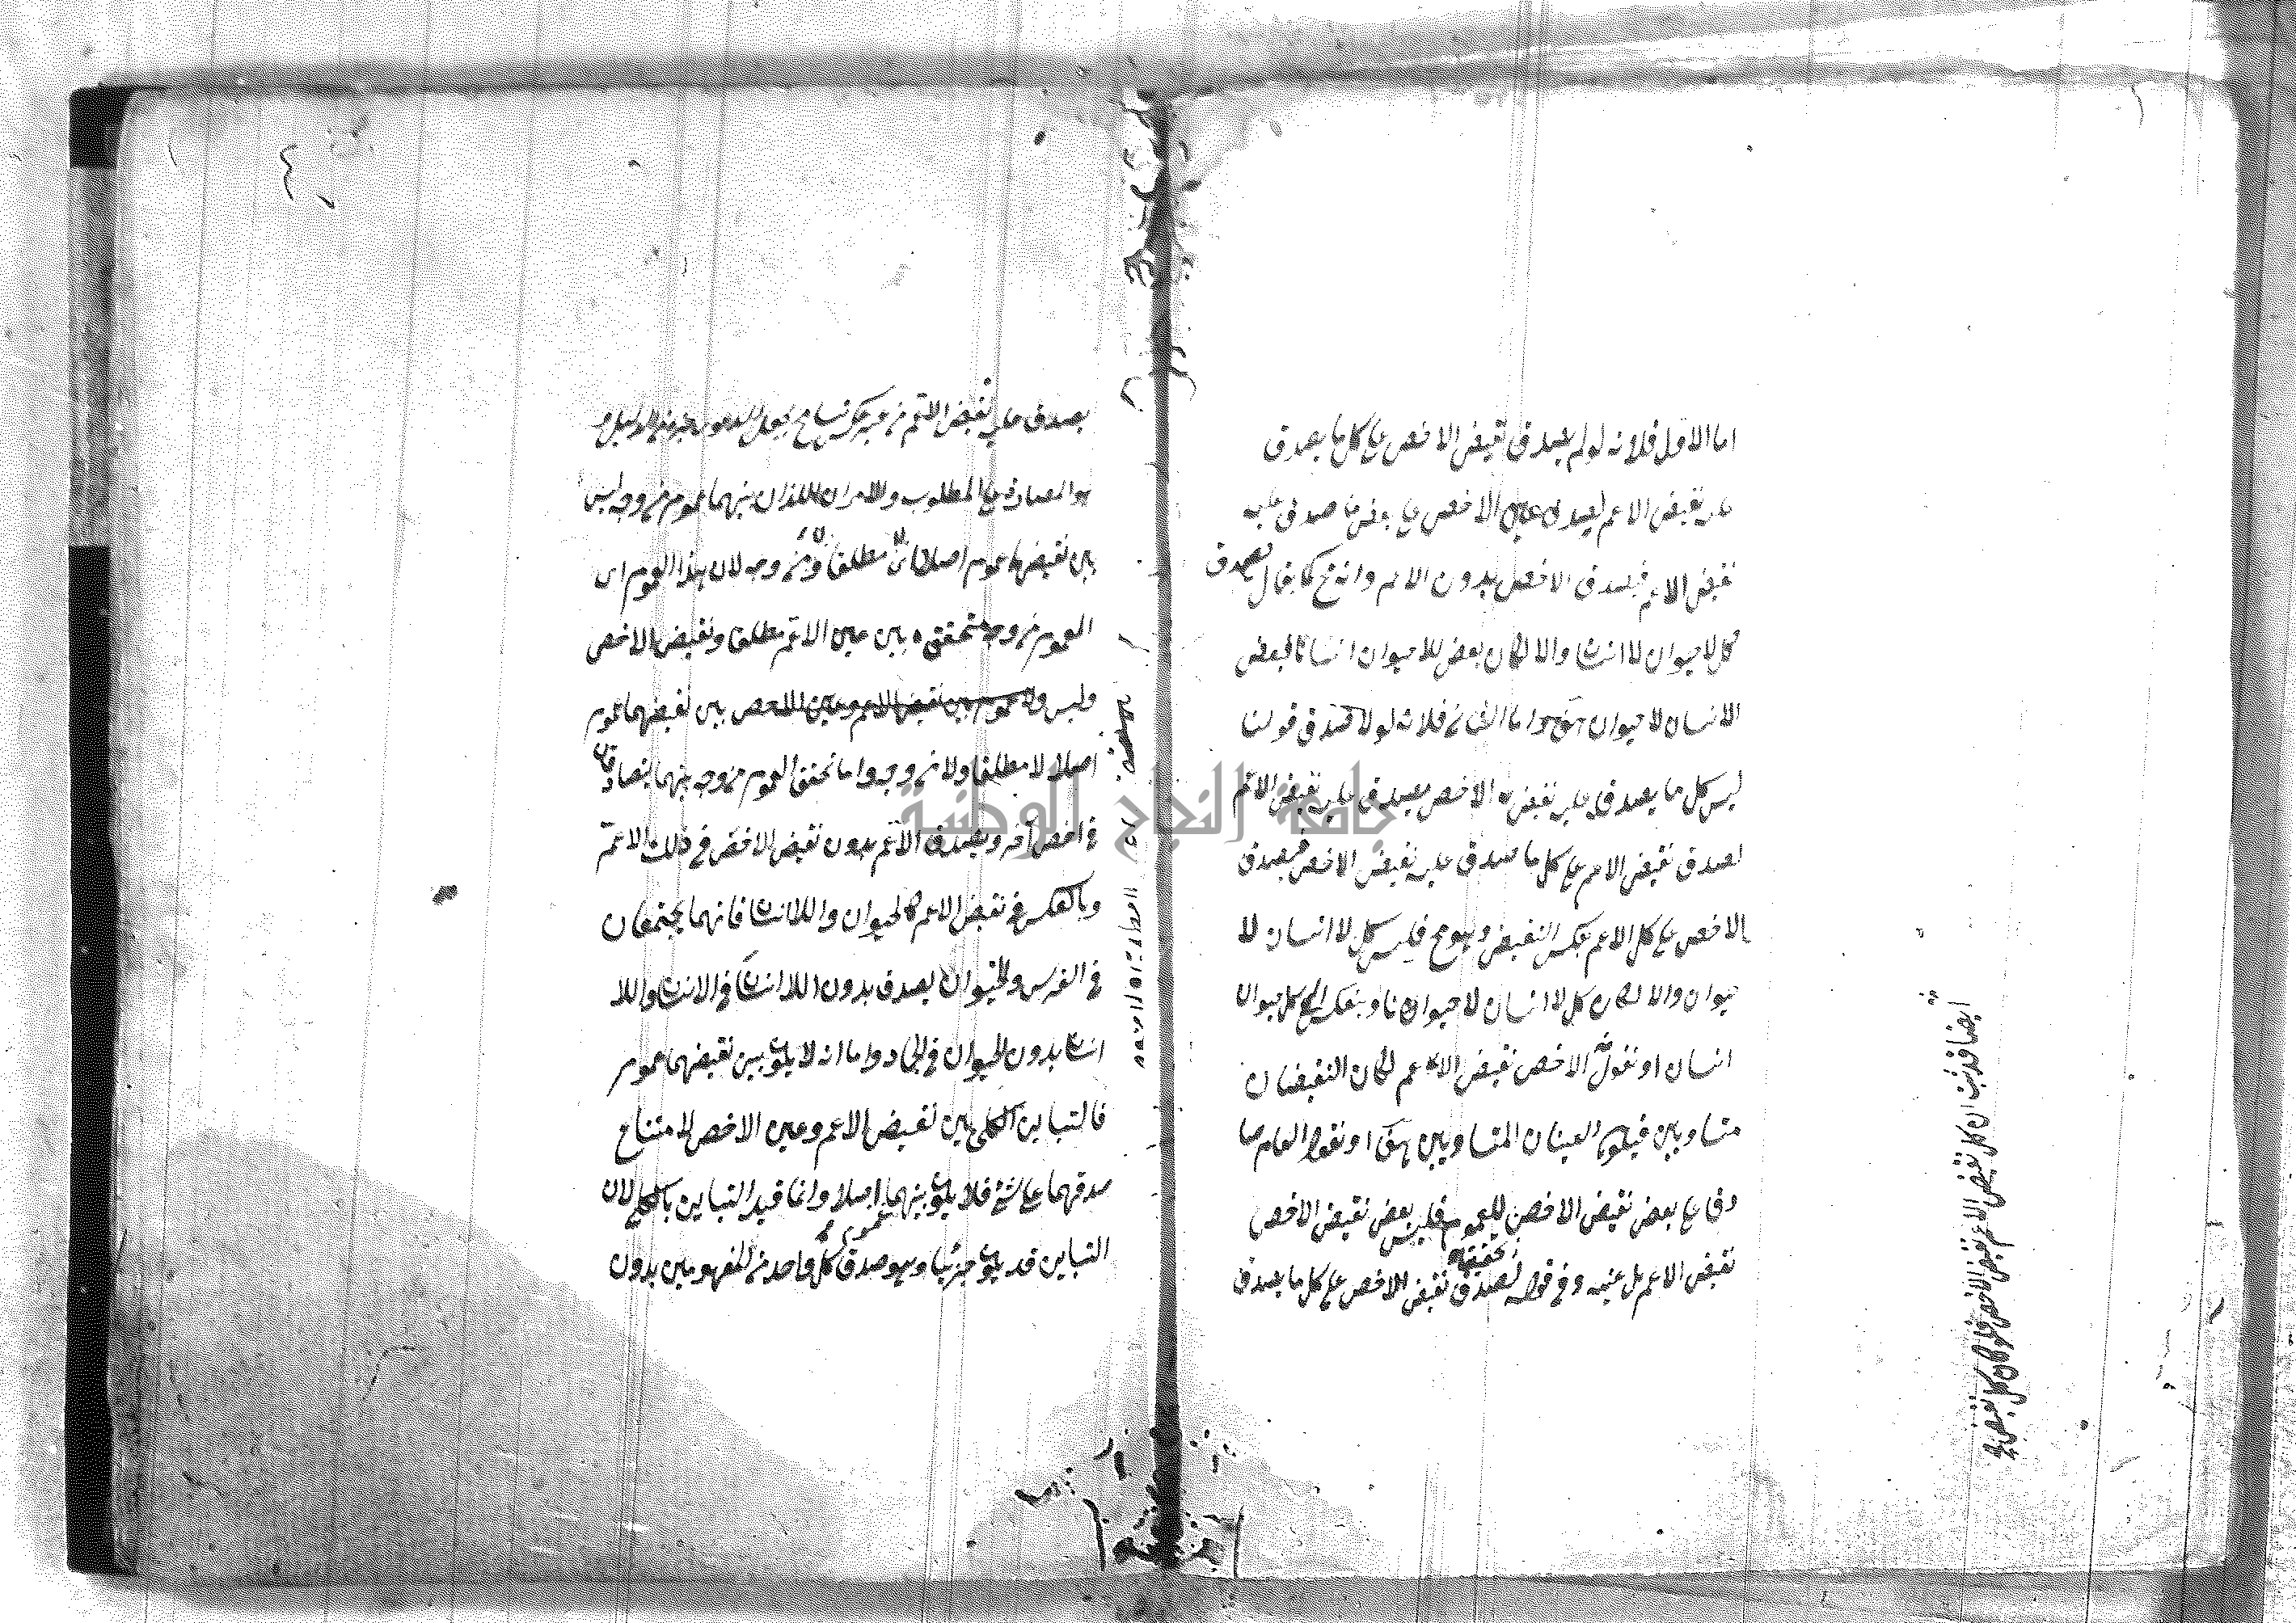 اما الاول فلانه لو لم يصدق نقيض الاخص على كل ما يصدق
عليه نقيض الاعم لصدق عين الاخص على بعض ما صدق عليه
نقيض الاعم فيصدق الاخص بدون الاعم وانه مح كما يقال يصدق
كل لا حيوان لا انسان والا لكان بعض اللاحيوان انسانا فبعض
الانسان لا حيوان هف واما الثاني فلانه لو لا صدق قولنا
ليس كل ما يصدق عليه نقيض الاخص يصدق عليه نقيض الاعم
لصدق نقيض الاعم على كل ما صدق عليه نقيض الاخص فيصدق
الاخص على كل الاعم بعكس النقيض وهو مح فليس كل لا انسان لا
حيوان والا لكان كل لا انسان لا حيوانا وينعكس الى كل حيوان
انسان او نقول الاخص نقيض الاعم لكان النقيضان
متساويين فيكون العينان المتساويين هف او نقول العام صا
دق على بعض نقيض الاخص للعموم فليس بعض نقيض الاخص
نقيض الاعم بل عينه وفي قوله لصدق نقيض الاخص على كل ما يصدق
ايضا قد ثبت ان كل نقيض الاعم نقيض الاخص فلو كان كل نقيض
يصدق عليه نقيض الاعم من غير عكس تسامح بجعل الدعوى جزء من الدليل و
هو المصادرة على المطلوب والامران اللذان بينهما عموم من وجه ليس
بين نقيضيهما عموم اصلا اى مطلقا او من وجه لان هذا العموم اى
العموم من وجه متحقق بين عين الاعم مطلقا ونقيض الاخص
وليس ولا عموم بين نقيض الاعم وعين الاخص بين نقيضهما عموم
اصلا لا مطلقا ولا من وجه واما تحقق العموم من وجه بينهما يتصادقان
في اخص آخر ويصدق الاعم بدون نقيض الاخص في ذلك الاعم
وبالعكس في نقيض الاعم كالحيوان واللا انسان فانهما يجتمعان
في الفرس والحيوان يصدق بدون اللا انسان في الانسان واللا
انسان بدون الحيوان في الجماد واما انه لا يكون بين نقيضهما عموم
فالتباين الكلي بين نقيض الاعم وعين الاخص لامتناع
صدقهما على شئ فلا يكون بينهما عموم اصلا وانما قيد التباين بالكلي لان
التباين قد يكون جزئيا وهو صدق كل واحد من المفهومين بدون
جامعة النجاح الوطنية